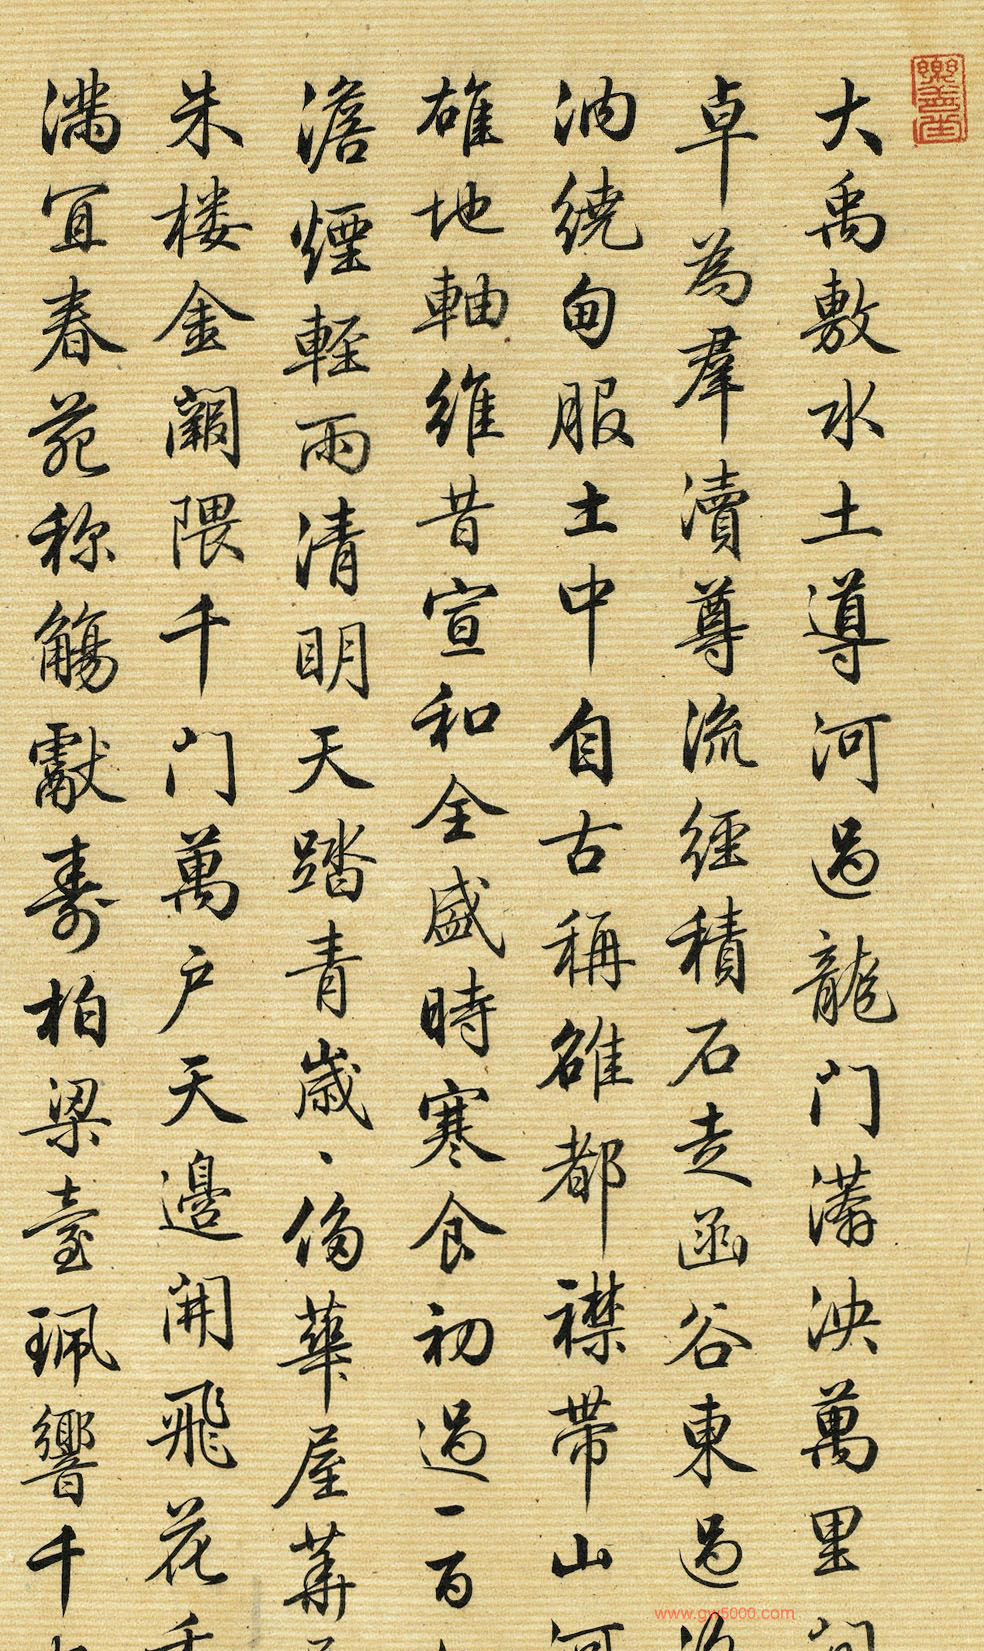 大禹敷水土導河過龍门滿泱萬里
卓為羣瀆尊流經積石走函谷東過
汭繞甸服土中自古稱雄都襟帶山河
雄地軸維昔宣和全盛時寒食初過一百
澹煙輕雨清明天踏青歲丶侈華屋
朱楼金闕隈千门萬户天邊開飛花
滿宜春苑称觴獻壽柏梁臺珮響千
www.gw5000.com